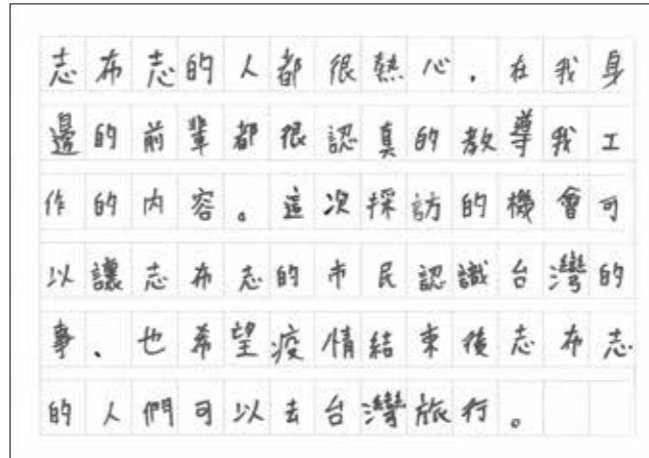 志布志的人都很熱心，在我身
邊的前輩都很認真的教導我工
作的內容。這次採訪的機會可
以讓志布志的市民認識台灣的
事、也希望疫情結束後志布志
的人們可以去台灣旅行。